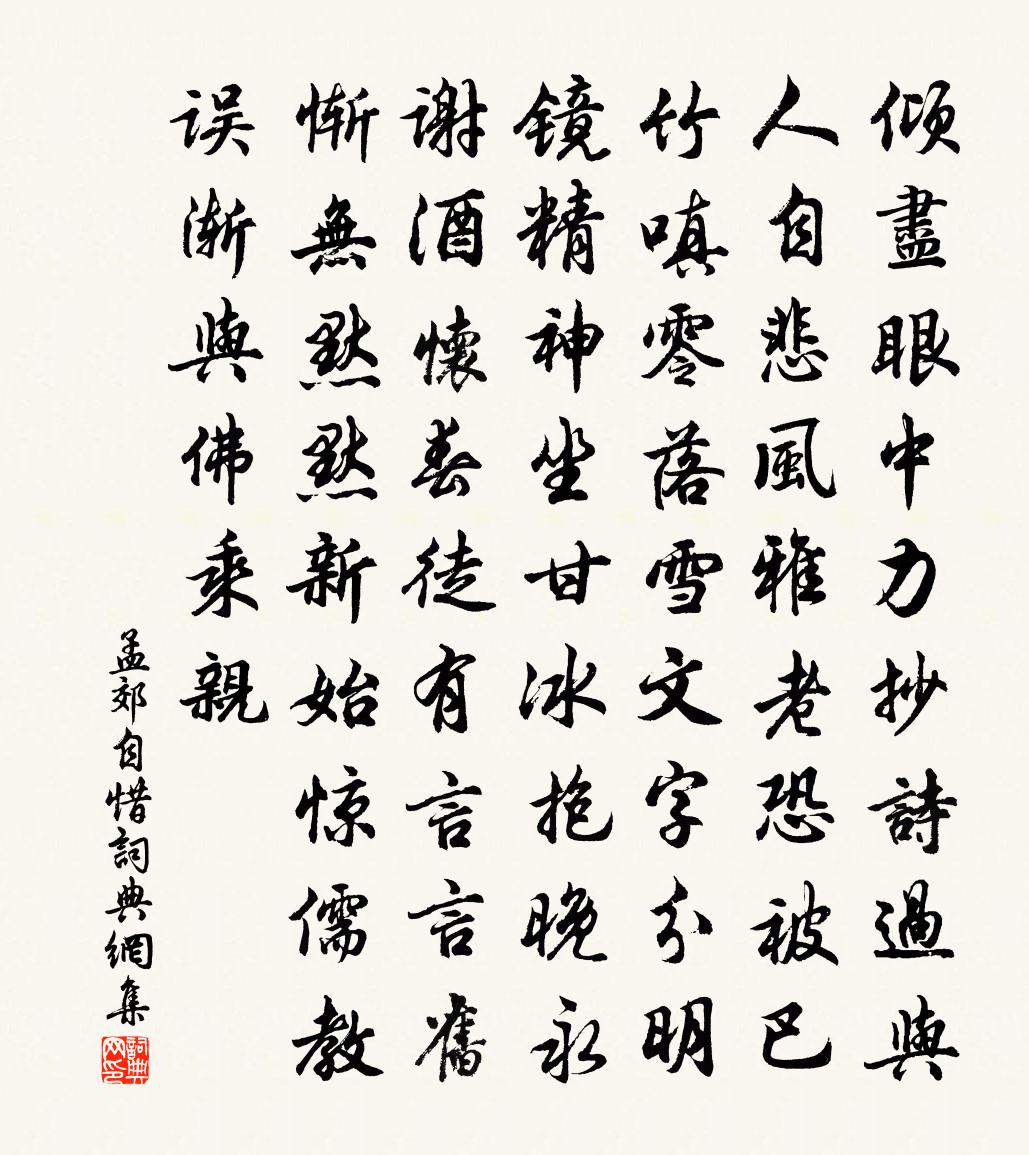 倾盡眼中力抄詩過與
人自悲風雅老恐被巴
竹嗔零落雪文字分明
镜精神坐甘冰抱晚永
谢酒懷春徒有言言舊
惭無默默新始惊儒教
误渐與佛乘親
孟郊自惜詞典網集
詞典网印